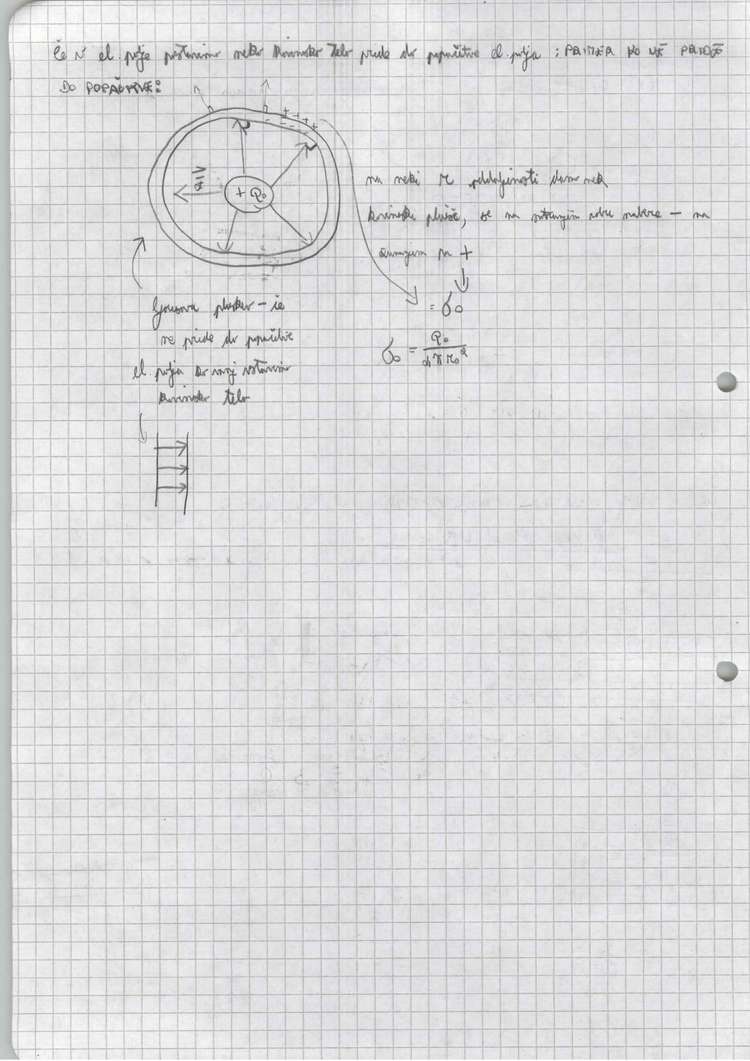 Če v el. polje postavimo neko kovinsko telo pride do popačitve el. polja ; PRIMER KO NE PRIDE
DO POPAČITVE:
+ + + +
- - -
E
+ Q₀
na neki r oddaljenosti damo nek
kovinski plašč, se na notranjem robu nabere - na
zunanjem pa +
= σ₀
σ₀ = Q₀ / 4πr₀²
Gaussova ploskev - če
ne pride do popačitve
el. polja ko vanj vstavimo
kovinsko telo